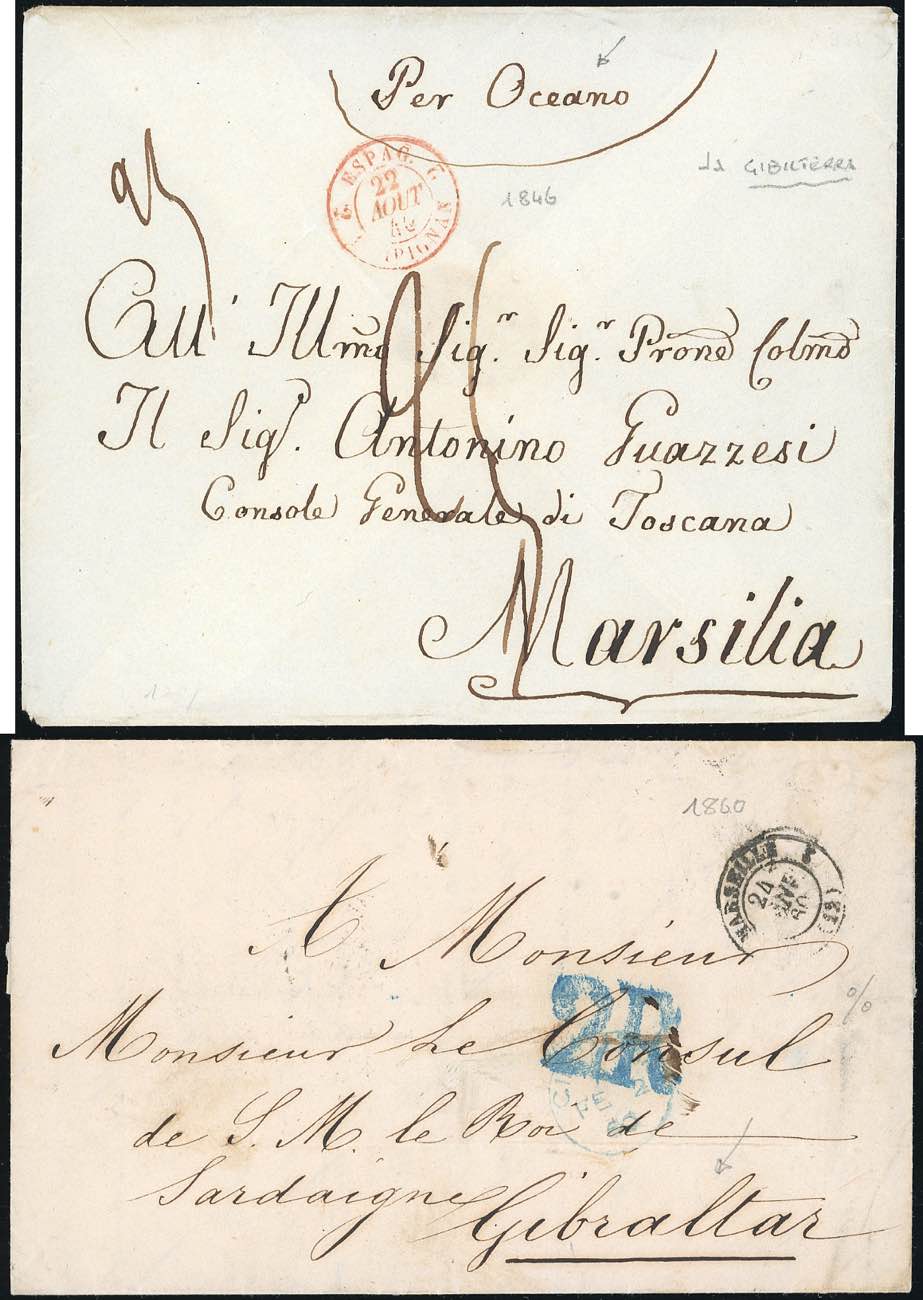 Per Oceano
da GIBILTERRA
1846
ESPAG.
22
AOUT
All' Illmo Sigr. Sigr. Prone Colmo
Il Sigr. Antonino Guazzesi
Console Generale di Toscana
Marsilia
1860
MARSEILLE
24
(12)
A Monsieur
2R
Monsieur Le Consul
de S. M. le Roi de
Sardaigne Gibraltar